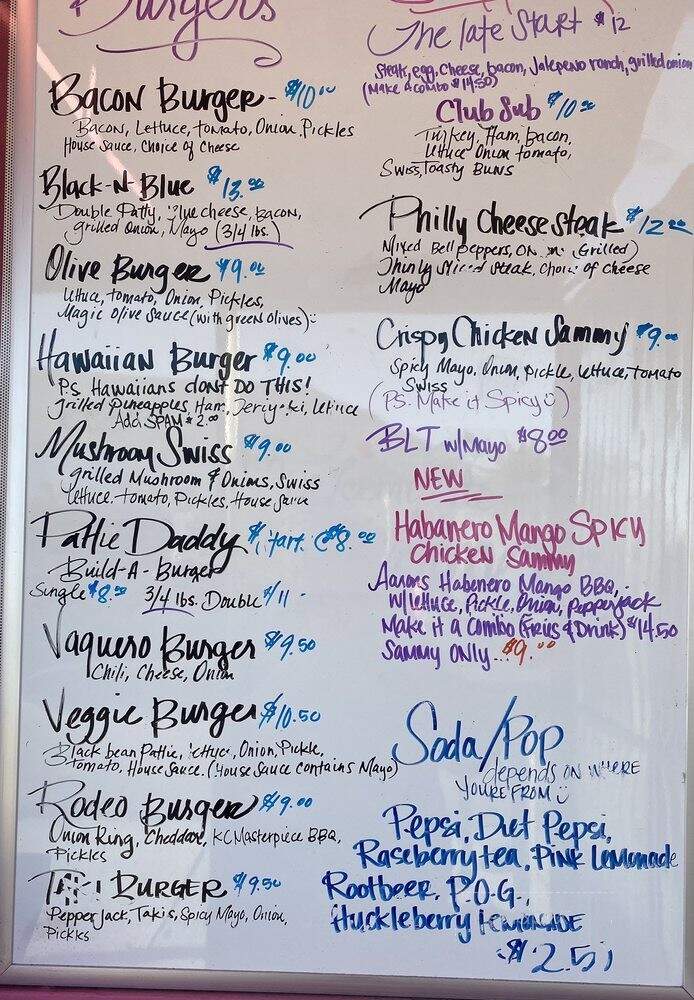 Burgers
Bacon Burger - $10.00
Bacon, Lettuce, tomato, Onion, Pickles
House Sauce, Choice of Cheese
Black-N-Blue $13.00
Double Patty, Blue cheese, bacon,
grilled onion, Mayo (3/4 lbs.)
Olive Burger $9.00
lettuce, tomato, Onion, Pickles,
Magic Olive Sauce (with green olives)
Hawaiian Burger $9.00
P.S Hawaiians dont DO THIS!
grilled Pineapples, Ham, Teriyaki, lettuce
Add SPAM $2.00
Mushroom Swiss $9.00
grilled Mushroom & Onions, Swiss
lettuce, tomato, Pickles, House Sauce
Pattie Daddy $ Start @ $8.00
Build-A-Burger
Single $8.00 3/4 lbs. Double $11-
Vaquero Burger $9.50
Chili, Cheese, Onion
Veggie Burger $10.50
Black bean Pattie, lettuce, Onion, Pickle,
tomato, House Sauce. (House Sauce contains Mayo)
Rodeo Burger $9.00
Onion Ring, Cheddar, KC Masterpiece BBQ,
Pickles
TAKI BURGER $9.50
Pepper Jack, Takis, Spicy Mayo, Onion,
Pickles
The late Start $12
Steak, egg, cheese, bacon, Jalepeno ranch, grilled onion
(Make a combo $14.50)
Club Sub $10.00
Turkey, Ham, bacon,
lettuce Onion tomato,
Swiss, Toasty Buns
Philly Cheesesteak $12.00
Mixed Bell peppers, Onion (Grilled)
Thinly Sliced Steak, Choice of cheese
Mayo
Crispy Chicken Sammy $9.00
Spicy Mayo, Onion, pickle, lettuce, tomato
Swiss
(P.S. Make it Spicy)
BLT w/Mayo $8.00
NEW
Habanero Mango SPICY
Chicken Sammy
Aarons Habenero Mango BBQ,
w/lettuce, Pickle, Onion, Pepperjack
Make it a Combo (Fries & Drink) $14.50
Sammy ONLY... $9.00
Soda/Pop
depends ON WHERE
YOURE FROM
Pepsi, Diet Pepsi,
Raseberry tea, Pink Lemonade
Rootbeer, P.O.G.,
Huckleberry LEMONADE